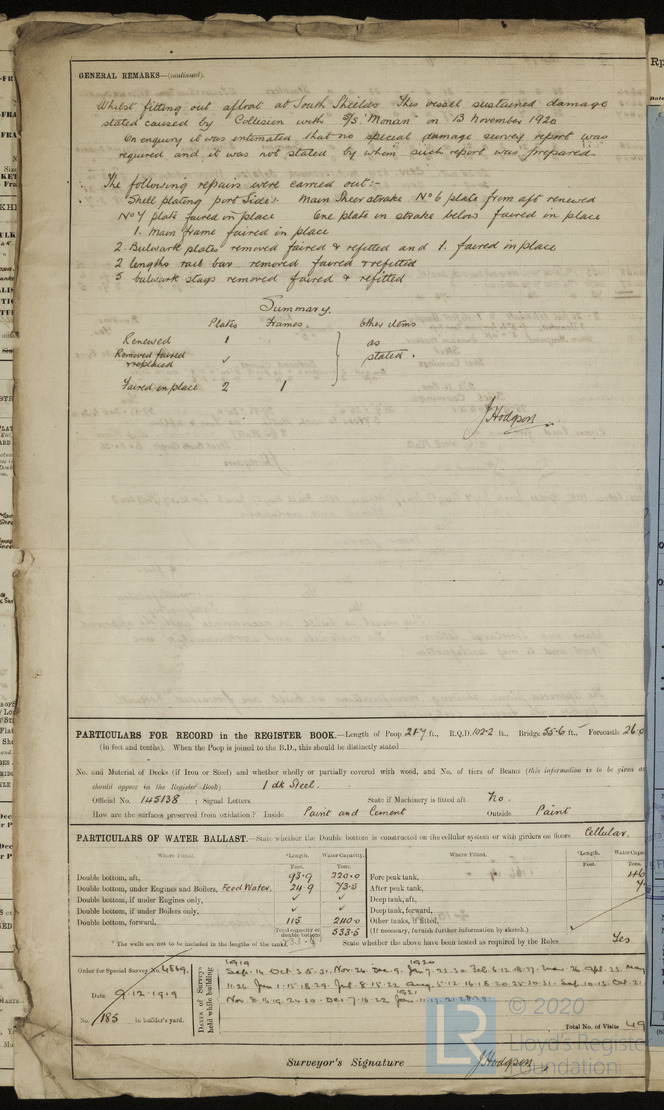 GENERAL REMARKS—(continued).
Whilst fitting out afloat at South Shields this vessel sustained damage
stated caused by Collision with S/S. "Monan" on 13 November 1920
On enquiry it was intimated that no special damage survey report was
required and it was not stated by whom such report was prepared.
The following repairs were carried out:-
Shell plating port Side:- Main Sheer strake No 6 plate from aft renewed
No 7 plate faired in place One plate in strake below faired in place
1. main frame faired in place
2 Bulwark plates removed faired & refitted and 1. faired in place
2 lengths rail bar removed faired & refitted
5 bulwark stays removed faired & refitted
Summary.
Plates Frames. Other items
Renewed 1 as
Removed faired & replaced ✓ stated.
Faired in place 2 1
J Hodgson
PARTICULARS FOR RECORD in the REGISTER BOOK.—Length of Poop 21.7 ft., R.Q.D. 102.2 ft., Bridge 55.6 ft., Forecastle 26.0
(in feet and tenths). When the Poop is joined to the B.D., this should be distinctly stated
No. and Material of Decks (if Iron or Steel) and whether wholly or partially covered with wood, and No. of tiers of Beams (this information is to be given as
should appear in the Register Book) 1 dk Steel.
Official No. 145138 ; Signal Letters State if Machinery is fitted aft No.
How are the surfaces preserved from oxidation? Inside Paint and Cement Outside Paint
PARTICULARS OF WATER BALLAST.—State whether the Double bottom is constructed on the cellular system or with girders on floors Cellular.
Where Fitted. *Length. Water Capacity. Where Fitted. *Length. Water Capac
Feet. Tons. Feet. Tons.
Double bottom, aft, 93.9 220.0 Fore peak tank,
Double bottom, under Engines and Boilers, Feed Water. 24.9 73.5 After peak tank,
Double bottom, if under Engines only, ✓ ✓ Deep tank, aft,
Double bottom, if under Boilers only, ✓ ✓ Deep tank, forward,
Double bottom, forward, 115 240.0 Other tanks, if fitted,
Total capacity of double bottom 533.5 (If necessary, furnish further information by sketch.)
* The wells are not to be included in the lengths of the tanks State whether the above have been tested as required by the Rules Yes
Order for Special Survey No. 4869.
Date 9.12.1919
No. 185 in builder's yard.
DATES of Surveys held while building
1919 1920
1921
Total No. of Visits 49
Surveyor's Signature J Hodgson
© 2020
LR
Lloyd's Register
Foundation